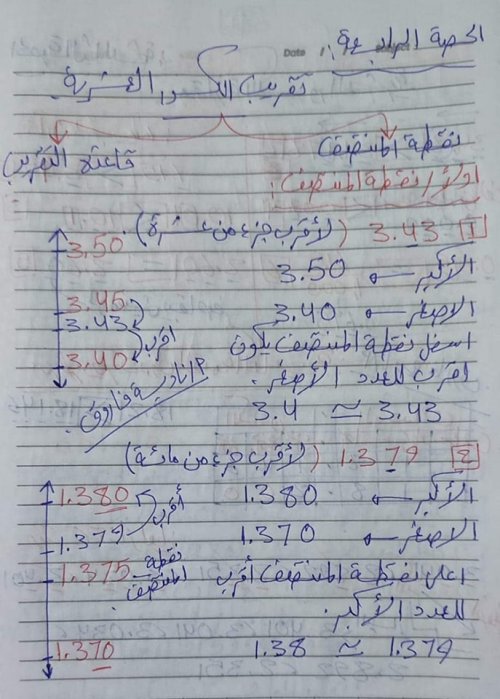 الحصة الرابعة:
Date / /
تقريب الكسور العشرية
نقطة المنتصف
قاعدة التقريب
أولاً / نقطة المنتصف:
1 3.43 (لأقرب جزء من عشرة).
3.50
الأكبر ← 3.50
3.45
الأصغر ← 3.40
3.43
أسفل نقطة المنتصف يكون
أقرب
3.40
أقرب للعدد الأصغر.
3.4 ≈ 3.43
م/نادية فاروق.
2 1.379 (لأقرب جزء من مائة)
1.380
أقرب
الأكبر ← 1.380
1.379
الأصغر ← 1.370
1.375 نقطة المنتصف
أعلى نقطة المنتصف أقرب
للعدد الأكبر.
1.370
1.38 ≈ 1.379